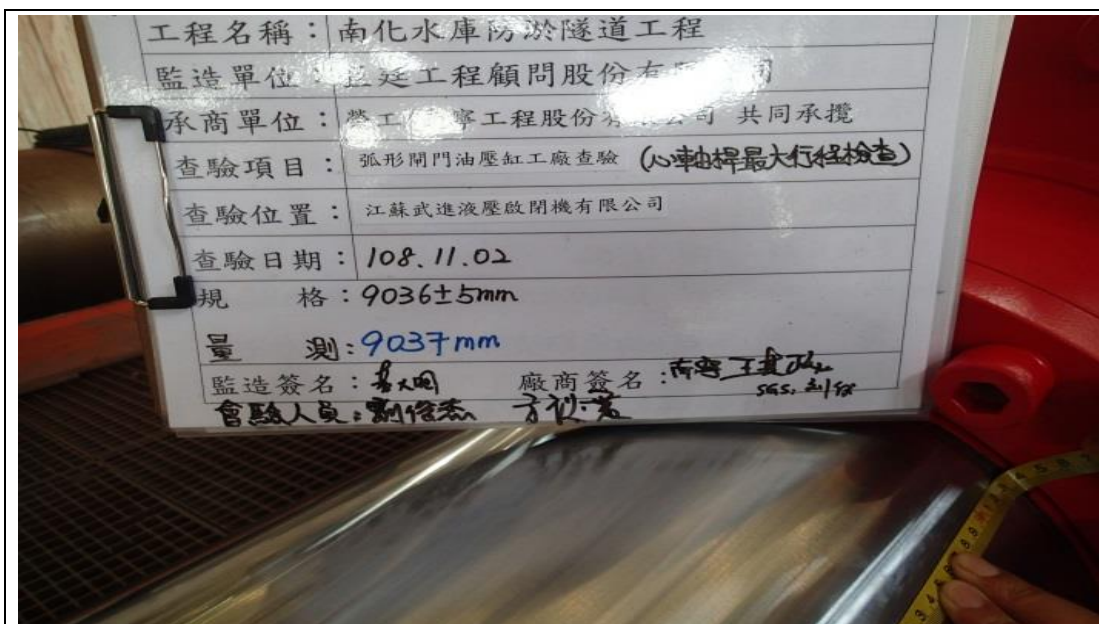 工程名稱：南化水庫防淤隧道工程
監造單位：工程顧問股份有
承商單位：工程股份有 公司 共同承攬
查驗項目：弧形閘門油壓缸工廠查驗 (心軸桿最大行程檢查)
查驗位置：江蘇武進液壓啟閉機有限公司
查驗日期：108.11.02
規 格：9036±5mm
量 測：9037mm
監造簽名： 廠商簽名：
會驗人員：